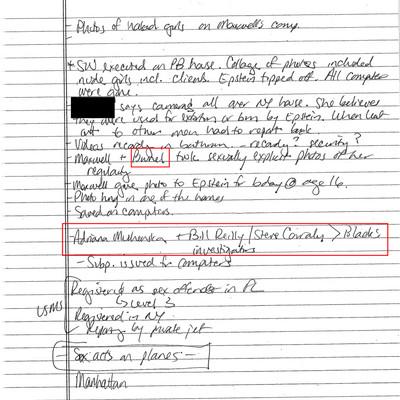 - Photos of naked girls on Maxwell's comp.
* SW executed on PB house. Collage of photos included
nude girls incl. clients. Epstein tipped off. All computers
were gone.
says cameras all over NY house. She believes
they were used for extortion or bm by Epstein. When lent
out to other men had to report back.
- Videos recording in bathroom. recording? security?
- Maxwell + took sexually explicit photos of her
regularly
- Maxwell gave photo to Epstein for bday @ age 16.
- Photo hung in one of the homes
- Saved on computers.
- Adriana + Bill Reilly / Steve >
investigators
- Subp. issued for computers
USMS
Registered as sex offender in FL
↳ Level 3
Registered in NY
by private jet
- Sex acts on planes -
Manhattan